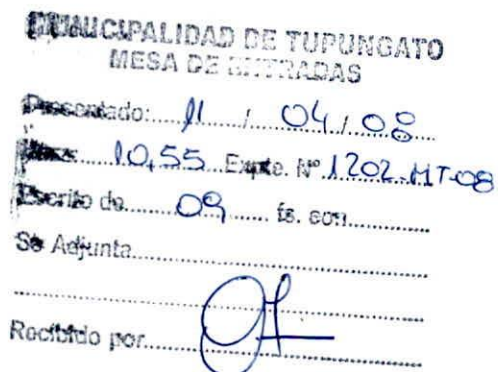 MUNICIPALIDAD DE TUPUNGATO
MESA DE ENTRADAS
Presentado: 11 / 04 / 08
Hora: 10,55 Expte. Nº 1202-MT-08
Escrito de 09 fs. con
Se Adjunta
Recibido por